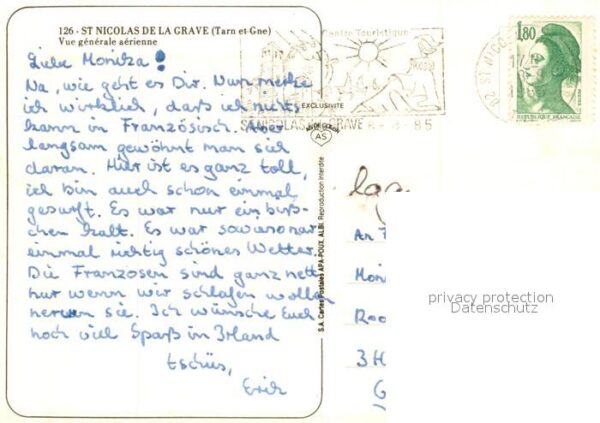 126 - ST NICOLAS DE LA GRAVE (Tarn et Gne)
Vue générale aérienne
Liebe Monika!
Na, wie geht es Dir. Nun merke
ich wirklich, daß ich nichts
kann in Französisch. Aber
langsam gewöhnt man sich
daran. Hier ist es ganz toll,
ich bin auch schon einmal
gesurft. Es war nur ein biß-
chen kalt. Es war sowieso nur
einmal richtig schönes Wetter.
Die Franzosen sind ganz nett
nur wenn wir schlafen wollen
nerven sie. Ich wünsche Euch
noch viel Spaß in Irland
tschüs,
Erich
Centre Touristique
EXCLUSIVITE
AS
S.A. Cartes Postales APA-POUX, ALBI. Reproduction Interdite
1,80
REPUBLIQUE FRANÇAISE
An
privacy protection
Datenschutz